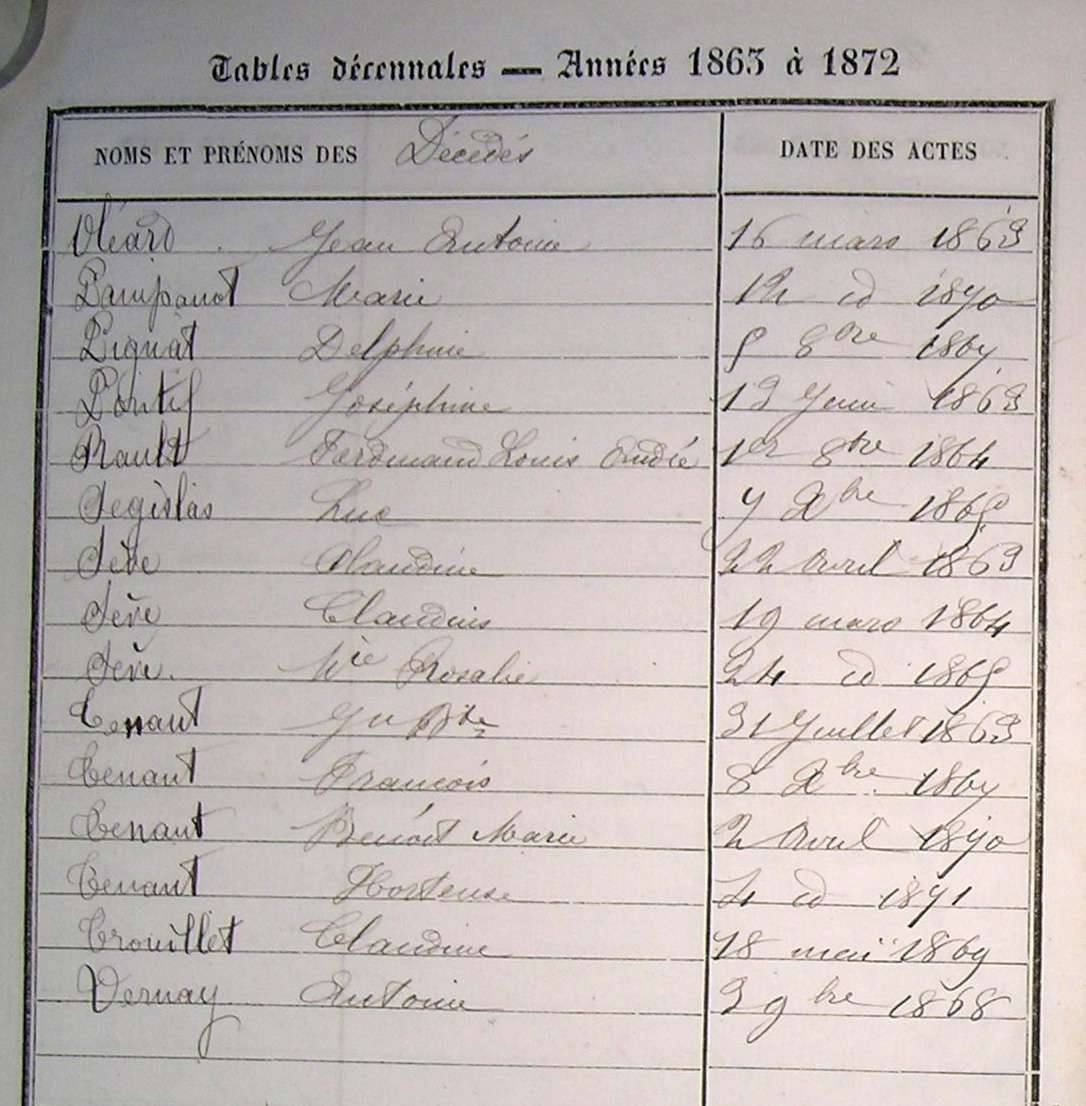 Tables décennales — Années 1863 à 1872
NOMS ET PRÉNOMS DES Décédés DATE DES ACTES
Oléard Jean Antoine 16 mars 1863
Pampanot Marie 12 id 1870
Pignat Delphine 5 8bre 1867
Pontif Joséphine 13 Juin 1863
Rault Ferdinand Louis André 1er 8bre 1864
Segislas Luc 7 Xbre 1865
Sève Claudine 22 Avril 1863
Sève Claudius 19 mars 1864
Sève Mie Rosalie 24 id 1865
Tenant Jn Bte 31 Juillet 1863
Tenant François 8 Xbre 1867
Tenant Benoit Marie 2 Avril 1870
Tenant Hortense 4 id 1871
Trouillet Claudine 18 mai 1869
Vernay Antoine 3 9bre 1868